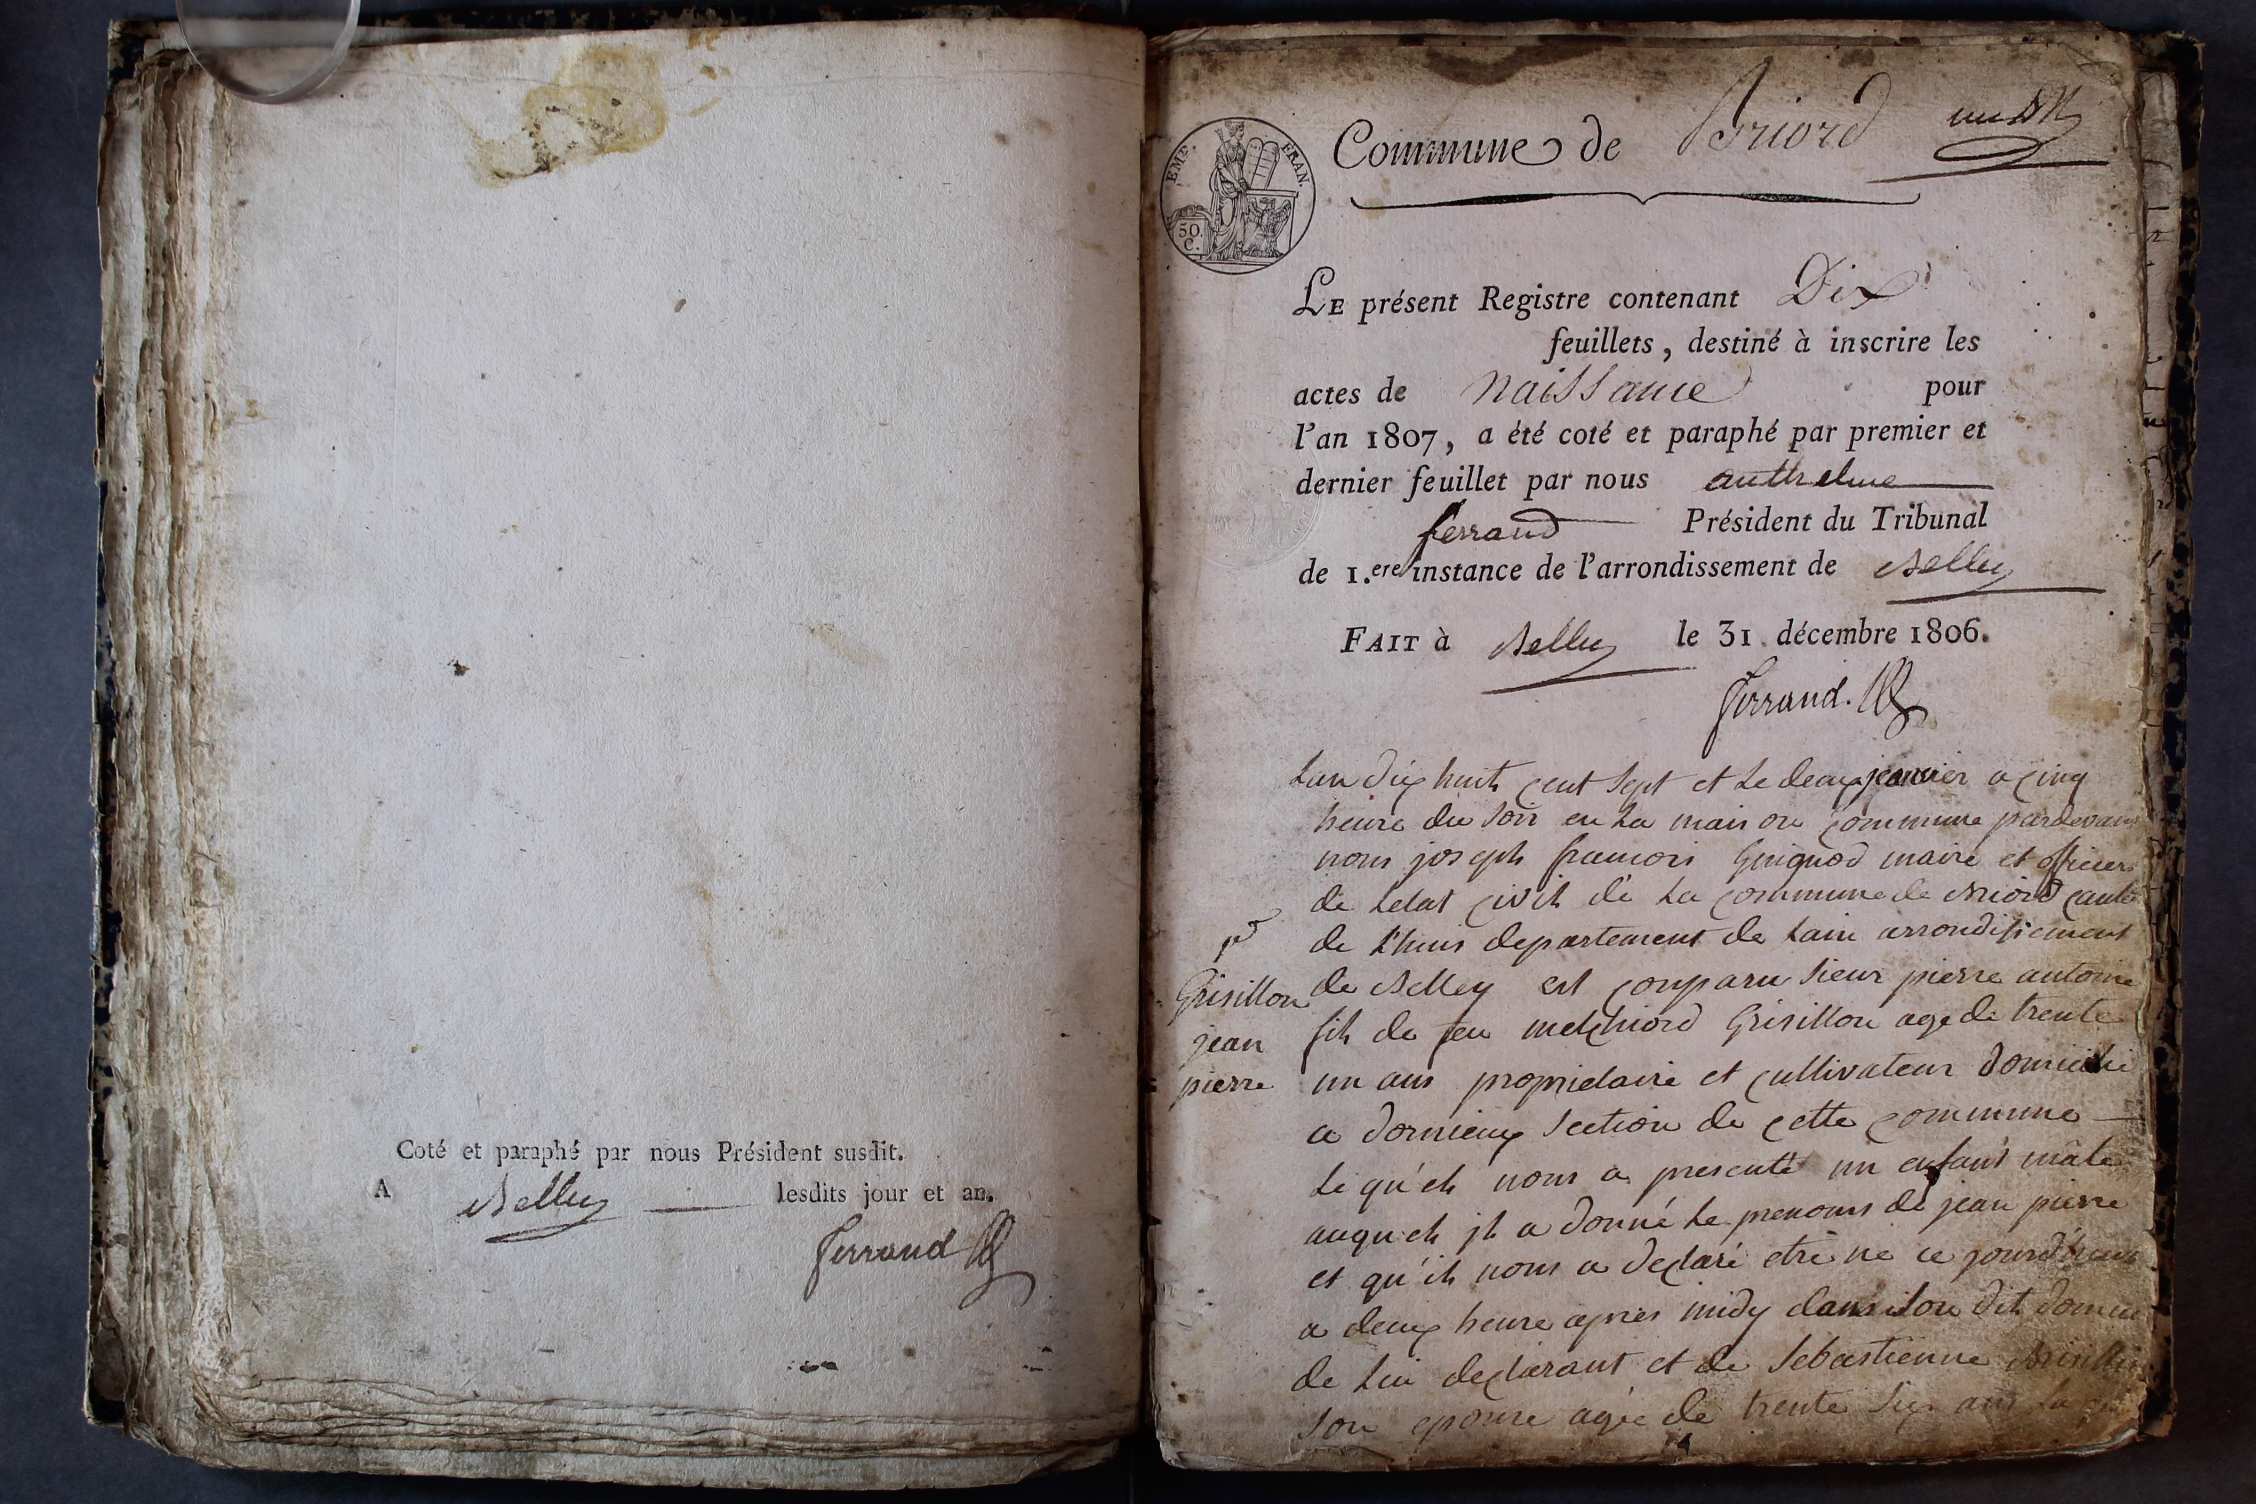 Coté et paraphé par nous Président susdit.
A Belley lesdits jour et an.
Ferrand
EMP. FRAN.
50. C.
Commune de Briord un
LE présent Registre contenant Dix
feuillets, destiné à inscrire les
actes de naissance pour
l'an 1807, a été coté et paraphé par premier et
dernier feuillet par nous anthelme
ferrand Président du Tribunal
de 1.ere instance de l'arrondissement de Belley
FAIT à Belley le 31 décembre 1806.
Ferrand.
Lan dix huit cent sept et le deux janvier a cinq
heure du soir en la maison commune pardevant
nous joseph francois Guignod maire et officier
de letat civil de la commune de Briord
de L'huis departement de lain arrondissement
de Belley est comparu sieur pierre antoine
fils de feu melchiord Grisillon age de trente
un ans proprietaire et cultivateur domicilié
a dornieux section de cette commune
lequel nous a presenté un enfant mâle
auquel il a donné le prenoms de jean pierre
et qu'il nous a declaré etre ne ce jourd'hui
a deux heure apres midy dans son dit
de lui declarant et de sebastienne
son epouse agée de trente six ans la
Grisillon
jean
pierre